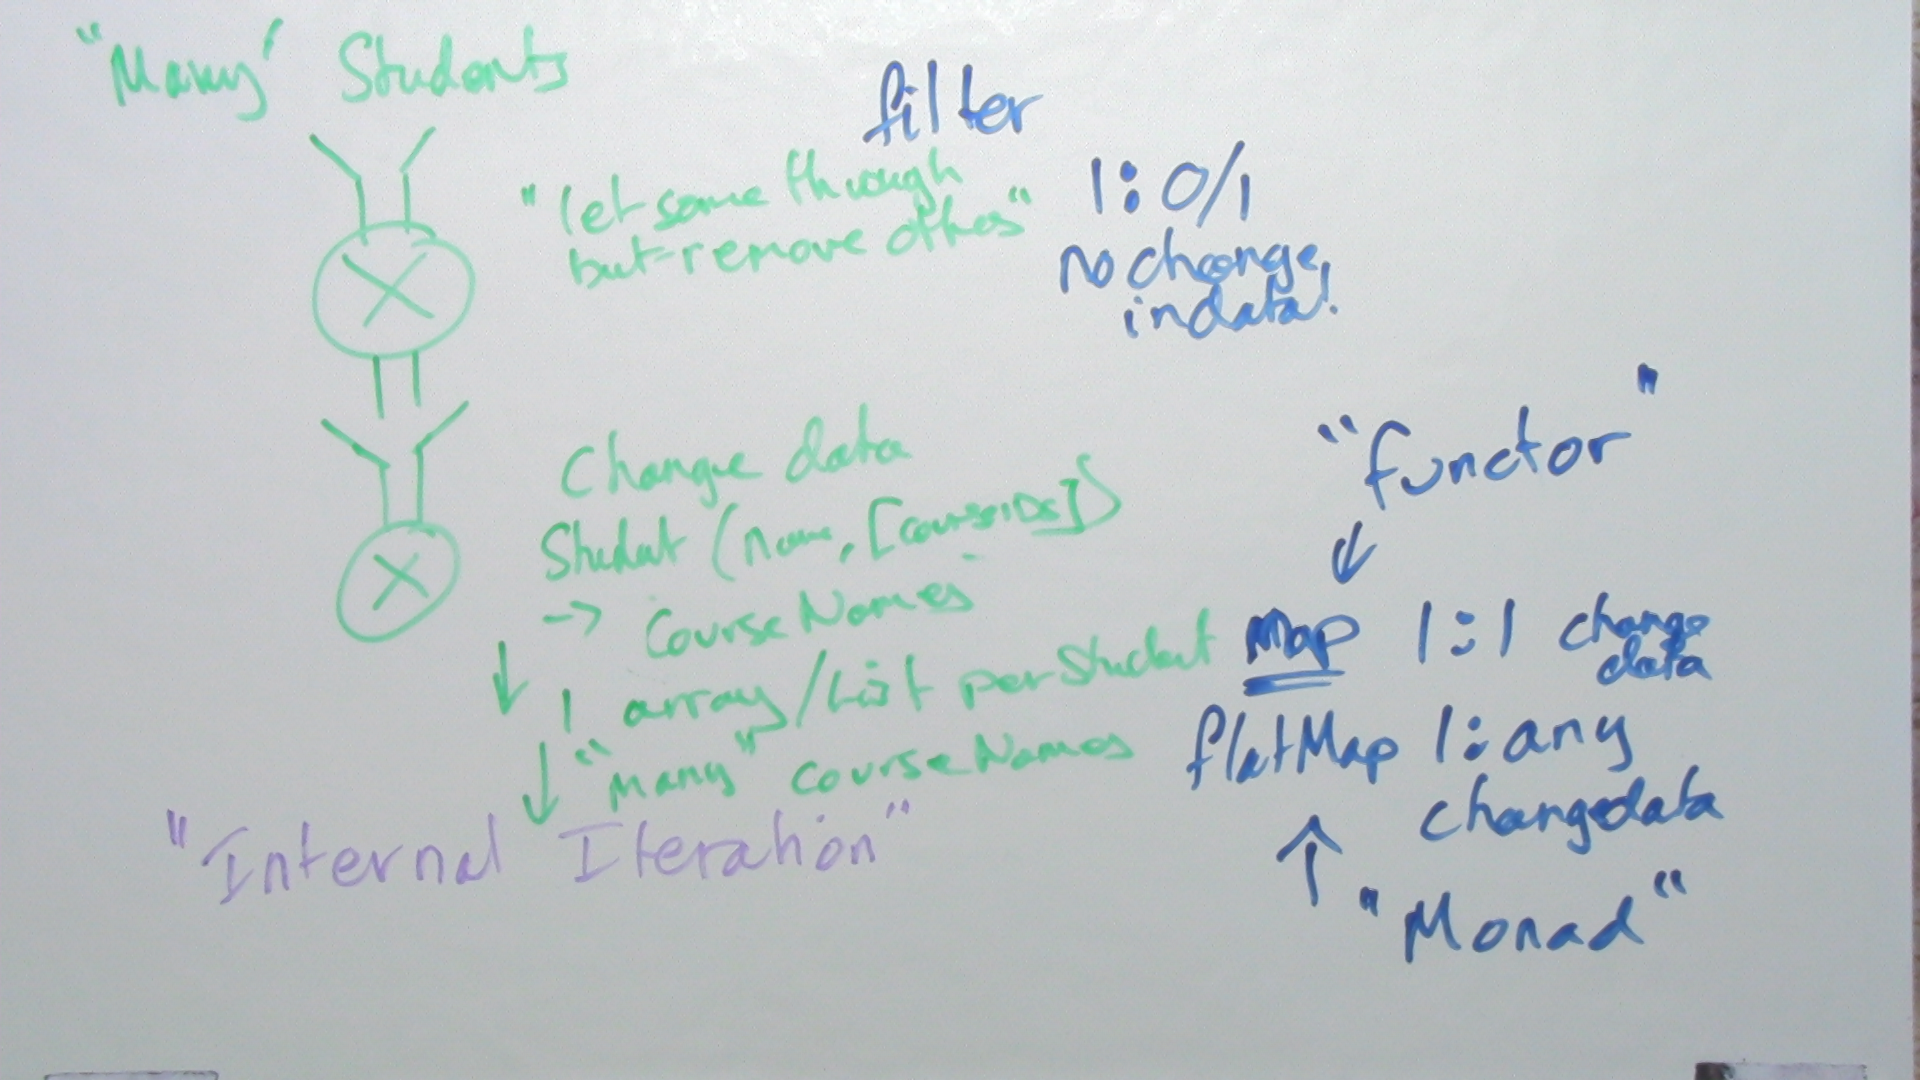 "Many" Students
filter
"let some through
but remove others"
1:0/1
no change
in data!
Change data
Student (name, [courseIDs])
-> CourseNames
1 array/List per Student
"many" courseNames
"Internal Iteration"
"functor"
Map 1:1 change
data
flatMap 1:any
changedata
"Monad"